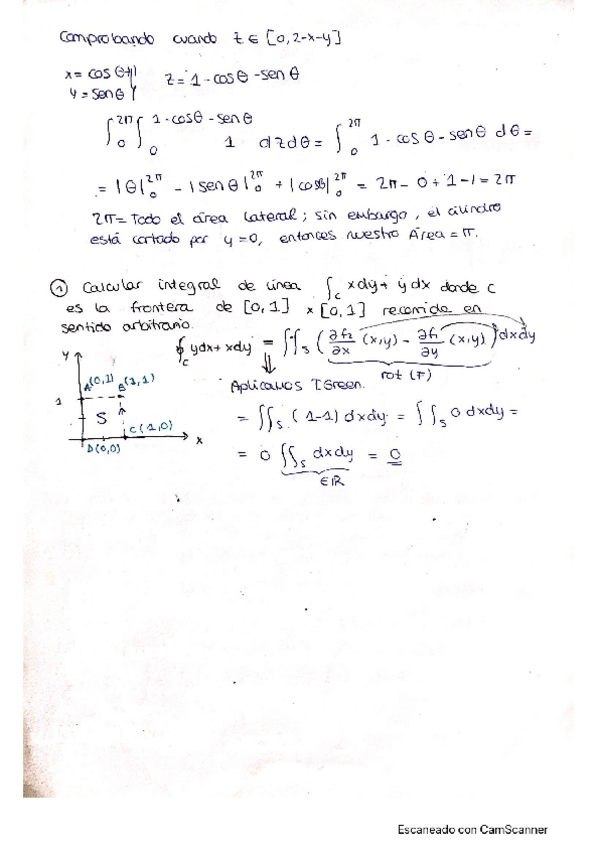 Comprobando cuando z ∈ [0, 2-x-y]
x = cosθ+1
y = senθ
z = 1 - cosθ - senθ
∫₀^2π ∫₀^1-cosθ-senθ 1 dzdθ = ∫₀^2π 1 - cosθ - senθ dθ =
= |θ|₀^2π - |senθ|₀^2π + |cosθ|₀^2π = 2π - 0 + 1 - 1 = 2π
2π = Todo el área lateral; sin embargo, el cilindro
está cortado por y=0, entonces nuestro Área = π.
① Calcular integral de línea ∫_C xdy + ydx donde c
es la frontera de [0,1] x [0,1] recorrida en
sentido arbitrario.
∮_C ydx + xdy = ∬_S (∂f₂/∂x (x,y) - ∂f₁/∂y (x,y)) dxdy
rot (F)
Aplicamos T.Green.
y
A(0,1) B(1,1)
1
S
C(1,0)
x
D(0,0)
= ∬_S (1-1) dxdy = ∬_S 0 dxdy =
= 0 ∬_S dxdy = 0
∈ℝ
Escaneado con CamScanner